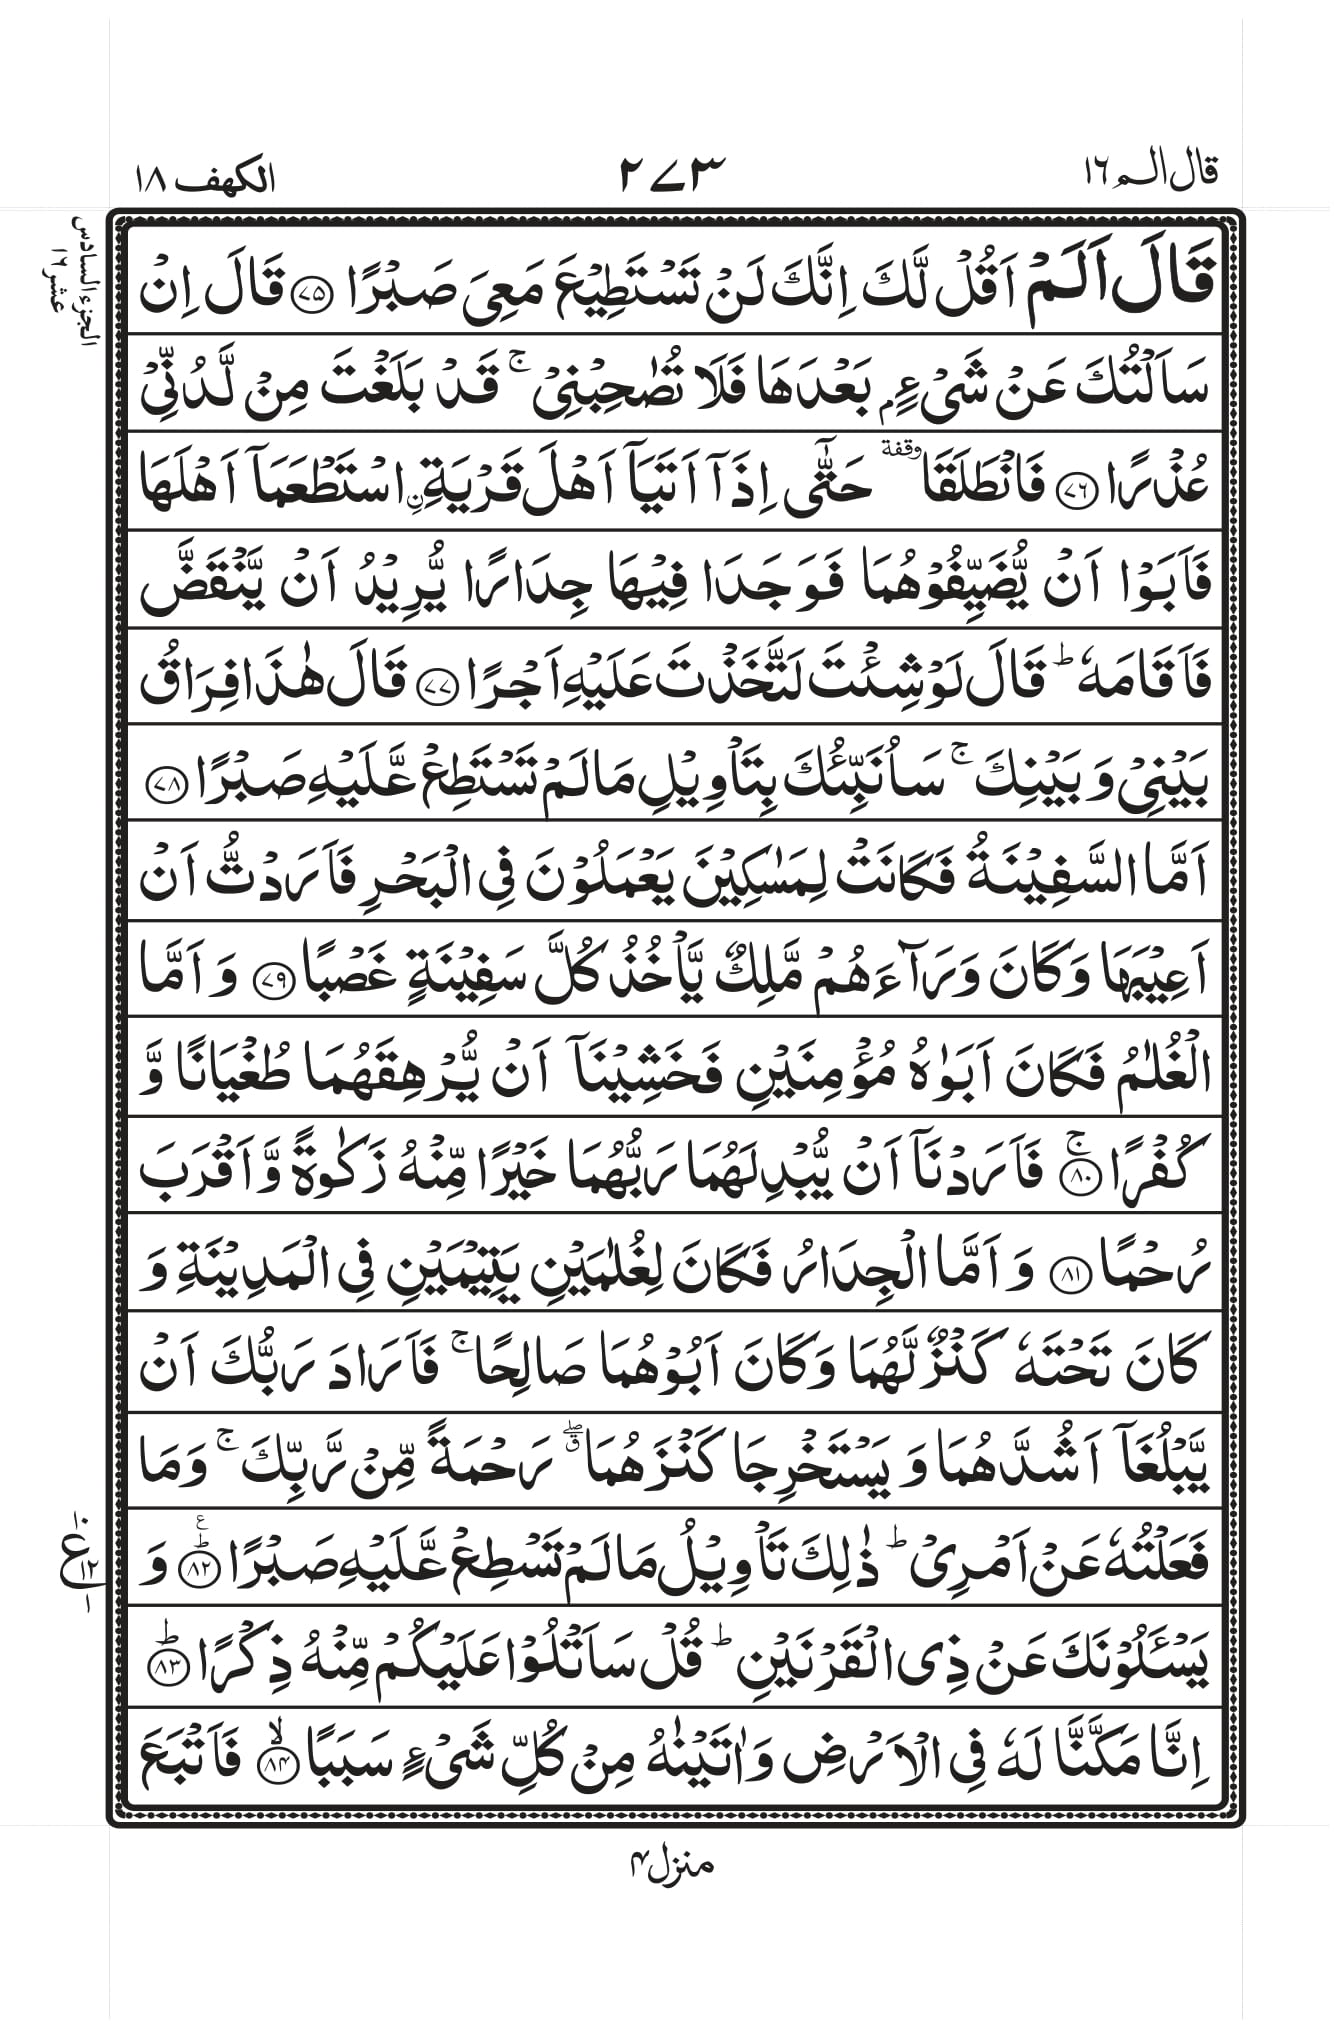 قال الم ١٦
٢٧٣
الكهف ١٨
الجزء السادس عشر ١٦
قَالَ اَلَمْ اَقُلْ لَّكَ اِنَّكَ لَنْ تَسْتَطِيْعَ مَعِيَ صَبْرًا ﴿۷۵﴾ قَالَ اِنْ
سَاَلْتُكَ عَنْ شَيْءٍۭ بَعْدَهَا فَلَا تُصٰحِبْنِيْ ۚ قَدْ بَلَغْتَ مِنْ لَّدُنِّيْ
عُذْرًا ﴿۷۶﴾ فَانْطَلَقَا وقفة حَتّٰۤى اِذَاۤ اَتَيَاۤ اَهْلَ قَرْيَةِ ِۨاسْتَطْعَمَاۤ اَهْلَهَا
فَاَبَوْا اَنْ يُّضَيِّفُوْهُمَا فَوَجَدَا فِيْهَا جِدَارًا يُّرِيْدُ اَنْ يَّنْقَضَّ
فَاَقَامَهٗ ؕ قَالَ لَوْ شِئْتَ لَتَّخَذْتَ عَلَيْهِ اَجْرًا ﴿۷۷﴾ قَالَ هٰذَا فِرَاقُ
بَيْنِيْ وَ بَيْنِكَ ۚ سَاُنَبِّئُكَ بِتَاْوِيْلِ مَا لَمْ تَسْتَطِعْ عَّلَيْهِ صَبْرًا ﴿۷۸﴾
اَمَّا السَّفِيْنَةُ فَكَانَتْ لِمَسٰكِيْنَ يَعْمَلُوْنَ فِي الْبَحْرِ فَاَرَدْتُّ اَنْ
اَعِيْبَهَا وَكَانَ وَرَآءَهُمْ مَّلِكٌ يَّاْخُذُ كُلَّ سَفِيْنَةٍ غَصْبًا ﴿۷۹﴾ وَ اَمَّا
الْغُلٰمُ فَكَانَ اَبَوٰهُ مُؤْمِنَيْنِ فَخَشِيْنَاۤ اَنْ يُّرْهِقَهُمَا طُغْيَانًا وَّ
كُفْرًا ۚ﴿۸۰﴾ فَاَرَدْنَاۤ اَنْ يُّبْدِلَهُمَا رَبُّهُمَا خَيْرًا مِّنْهُ زَكٰوةً وَّ اَقْرَبَ
رُحْمًا ﴿۸۱﴾ وَ اَمَّا الْجِدَارُ فَكَانَ لِغُلٰمَيْنِ يَتِيْمَيْنِ فِي الْمَدِيْنَةِ وَ
كَانَ تَحْتَهٗ كَنْزٌ لَّهُمَا وَكَانَ اَبُوْهُمَا صَالِحًا ۚ فَاَرَادَ رَبُّكَ اَنْ
يَّبْلُغَاۤ اَشُدَّهُمَا وَ يَسْتَخْرِجَا كَنْزَهُمَا ۖق رَحْمَةً مِّنْ رَّبِّكَ ۚ وَمَا
فَعَلْتُهٗ عَنْ اَمْرِيْ ؕ ذٰلِكَ تَاْوِيْلُ مَا لَمْ تَسْطِعْ عَّلَيْهِ صَبْرًا ؕ﴿۸۲﴾ وَ
١٠
ع ١٢
١
يَسْـَٔلُوْنَكَ عَنْ ذِي الْقَرْنَيْنِ ؕ قُلْ سَاَتْلُوْا عَلَيْكُمْ مِّنْهُ ذِكْرًا ؕ﴿۸۳﴾
اِنَّا مَكَّنَّا لَهٗ فِي الْاَرْضِ وَاٰتَيْنٰهُ مِنْ كُلِّ شَيْءٍ سَبَبًا ۙ﴿۸۴﴾ فَاَتْبَعَ
منزل ۴